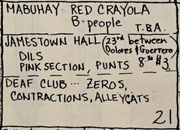 MABUHAY RED CRAYOLA
B-people
T.B.A.
JAMESTOWN HALL (23rd between
Dolores & Guerrero
DILS
PINK SECTION, PUNTS 8:30 $3
DEAF CLUB... ZEROS,
CONTRACTIONS, ALLEYCATS
21